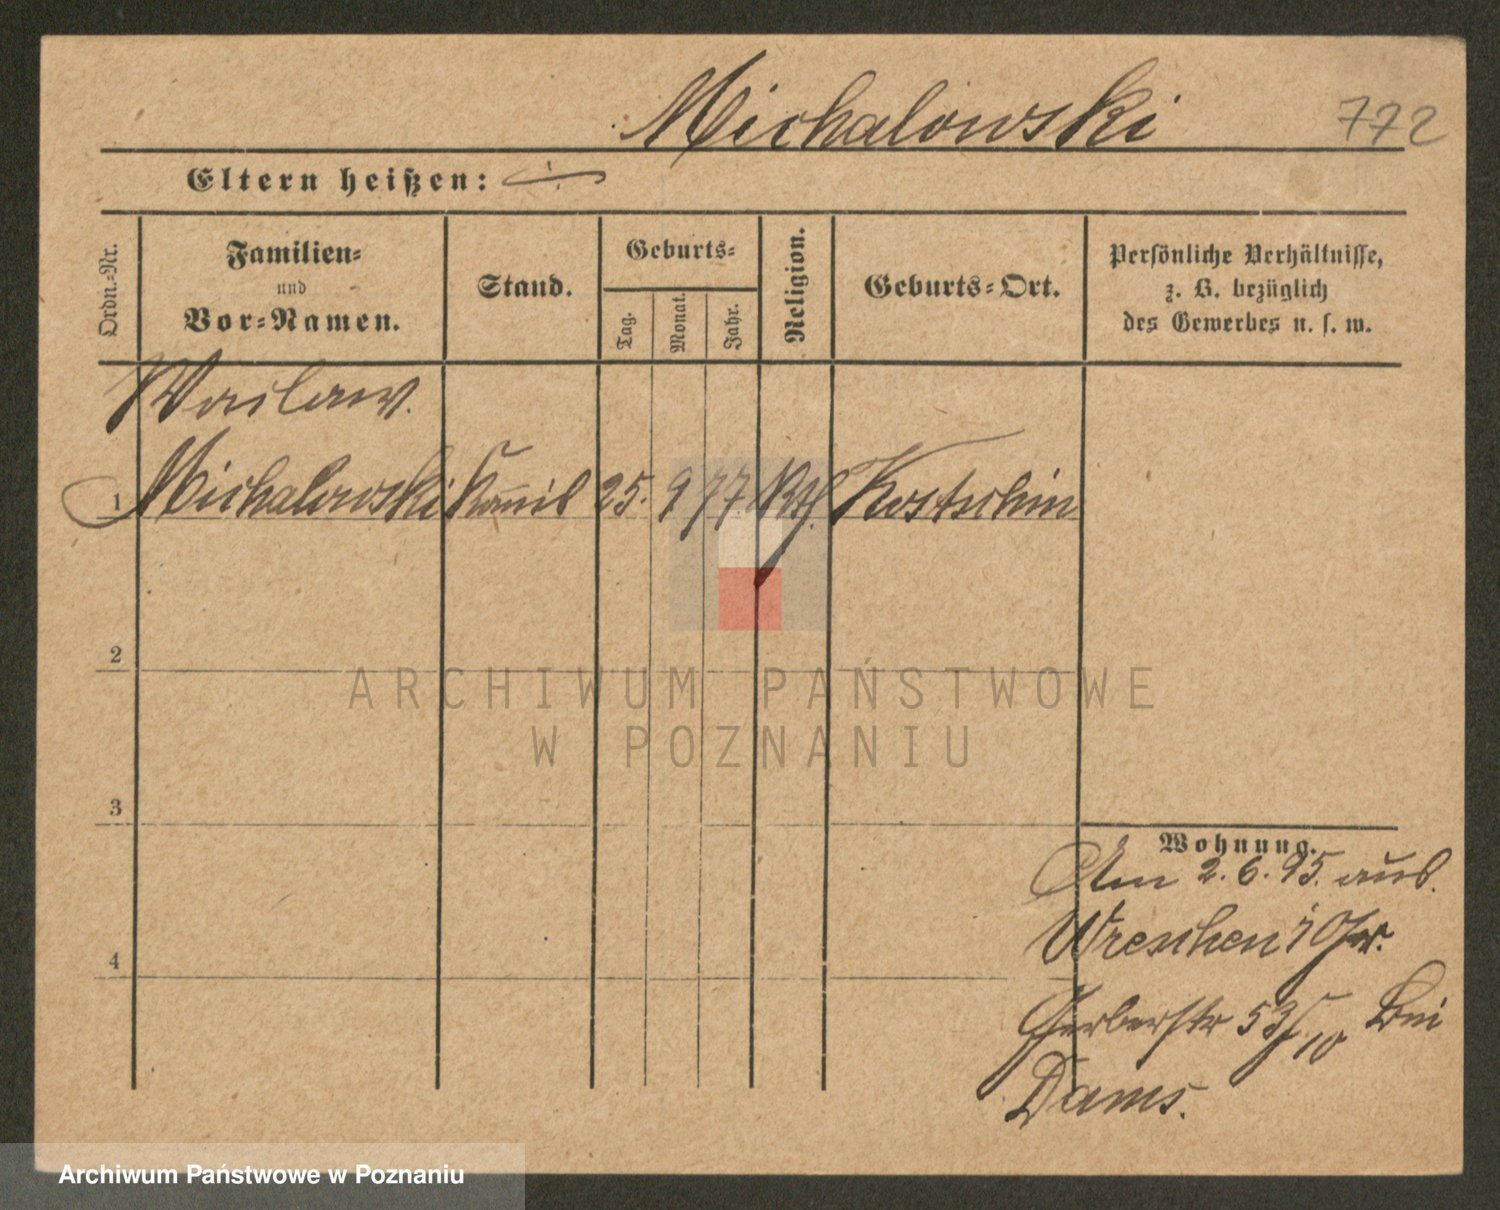 Michalowski 772
Eltern heißen: ÷
Ordn.-Nr.
Familien-
und
Vor-Namen.
Stand.
Geburts-
Tag.
Monat.
Jahr.
Religion.
Geburts-Ort.
Persönliche Verhältnisse,
z. B. bezüglich
des Gewerbes u. s. w.
Waclaw.
1 Michalowski 25. 9 77. Kth. Kostschin
2
ARCHIWUM PAŃSTWOWE
W POZNANIU
3
Wohnung.
Am 2. 6. 95. aus
Wreschen
4
Gerberstr 53 10 bei
Dams.
Archiwum Państwowe w Poznaniu